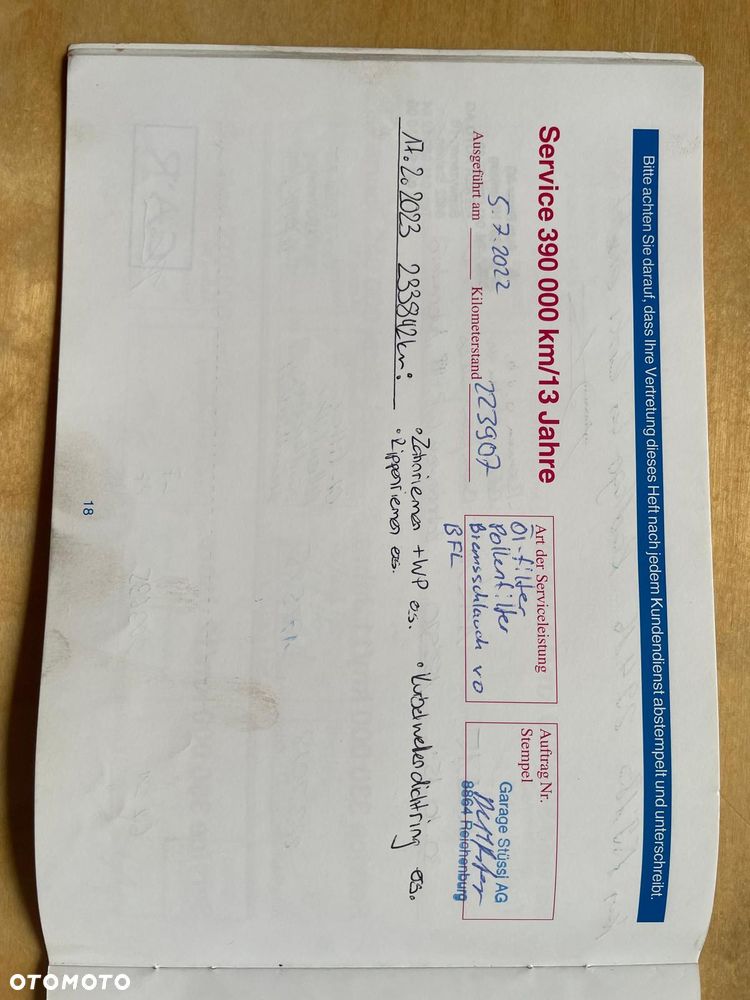 Bitte achten Sie darauf, dass Ihre Vertretung dieses Heft nach jedem Kundendienst abstempelt und unterschreibt.
Service 390 000 km/13 Jahre
Ausgeführt am 5.7.2022 Kilometerstand 223907
Art der Serviceleistung
Öl-filter
Pollenfilter
Bremsschlauch vo
BFL
Auftrag Nr.
Stempel
Garage Stüssi AG
8864 Reichenburg
17.2.2023 233842km:
• Zahnriemen + WP ers. • Kurbelwellendichtring ers.
• Rippenriemen ers.
18
OTOMOTO